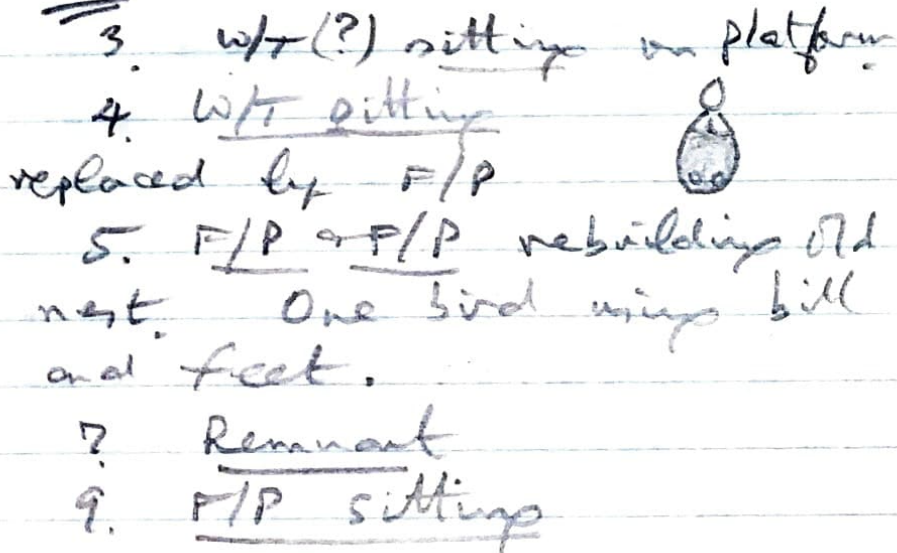 3. W/T(?) sitting on platform.
4. W/T sitting
replaced by F/P
5. F/P + F/P rebuilding old
nest. One bird using bill
and feet.
7. Remnant
9. F/P sitting